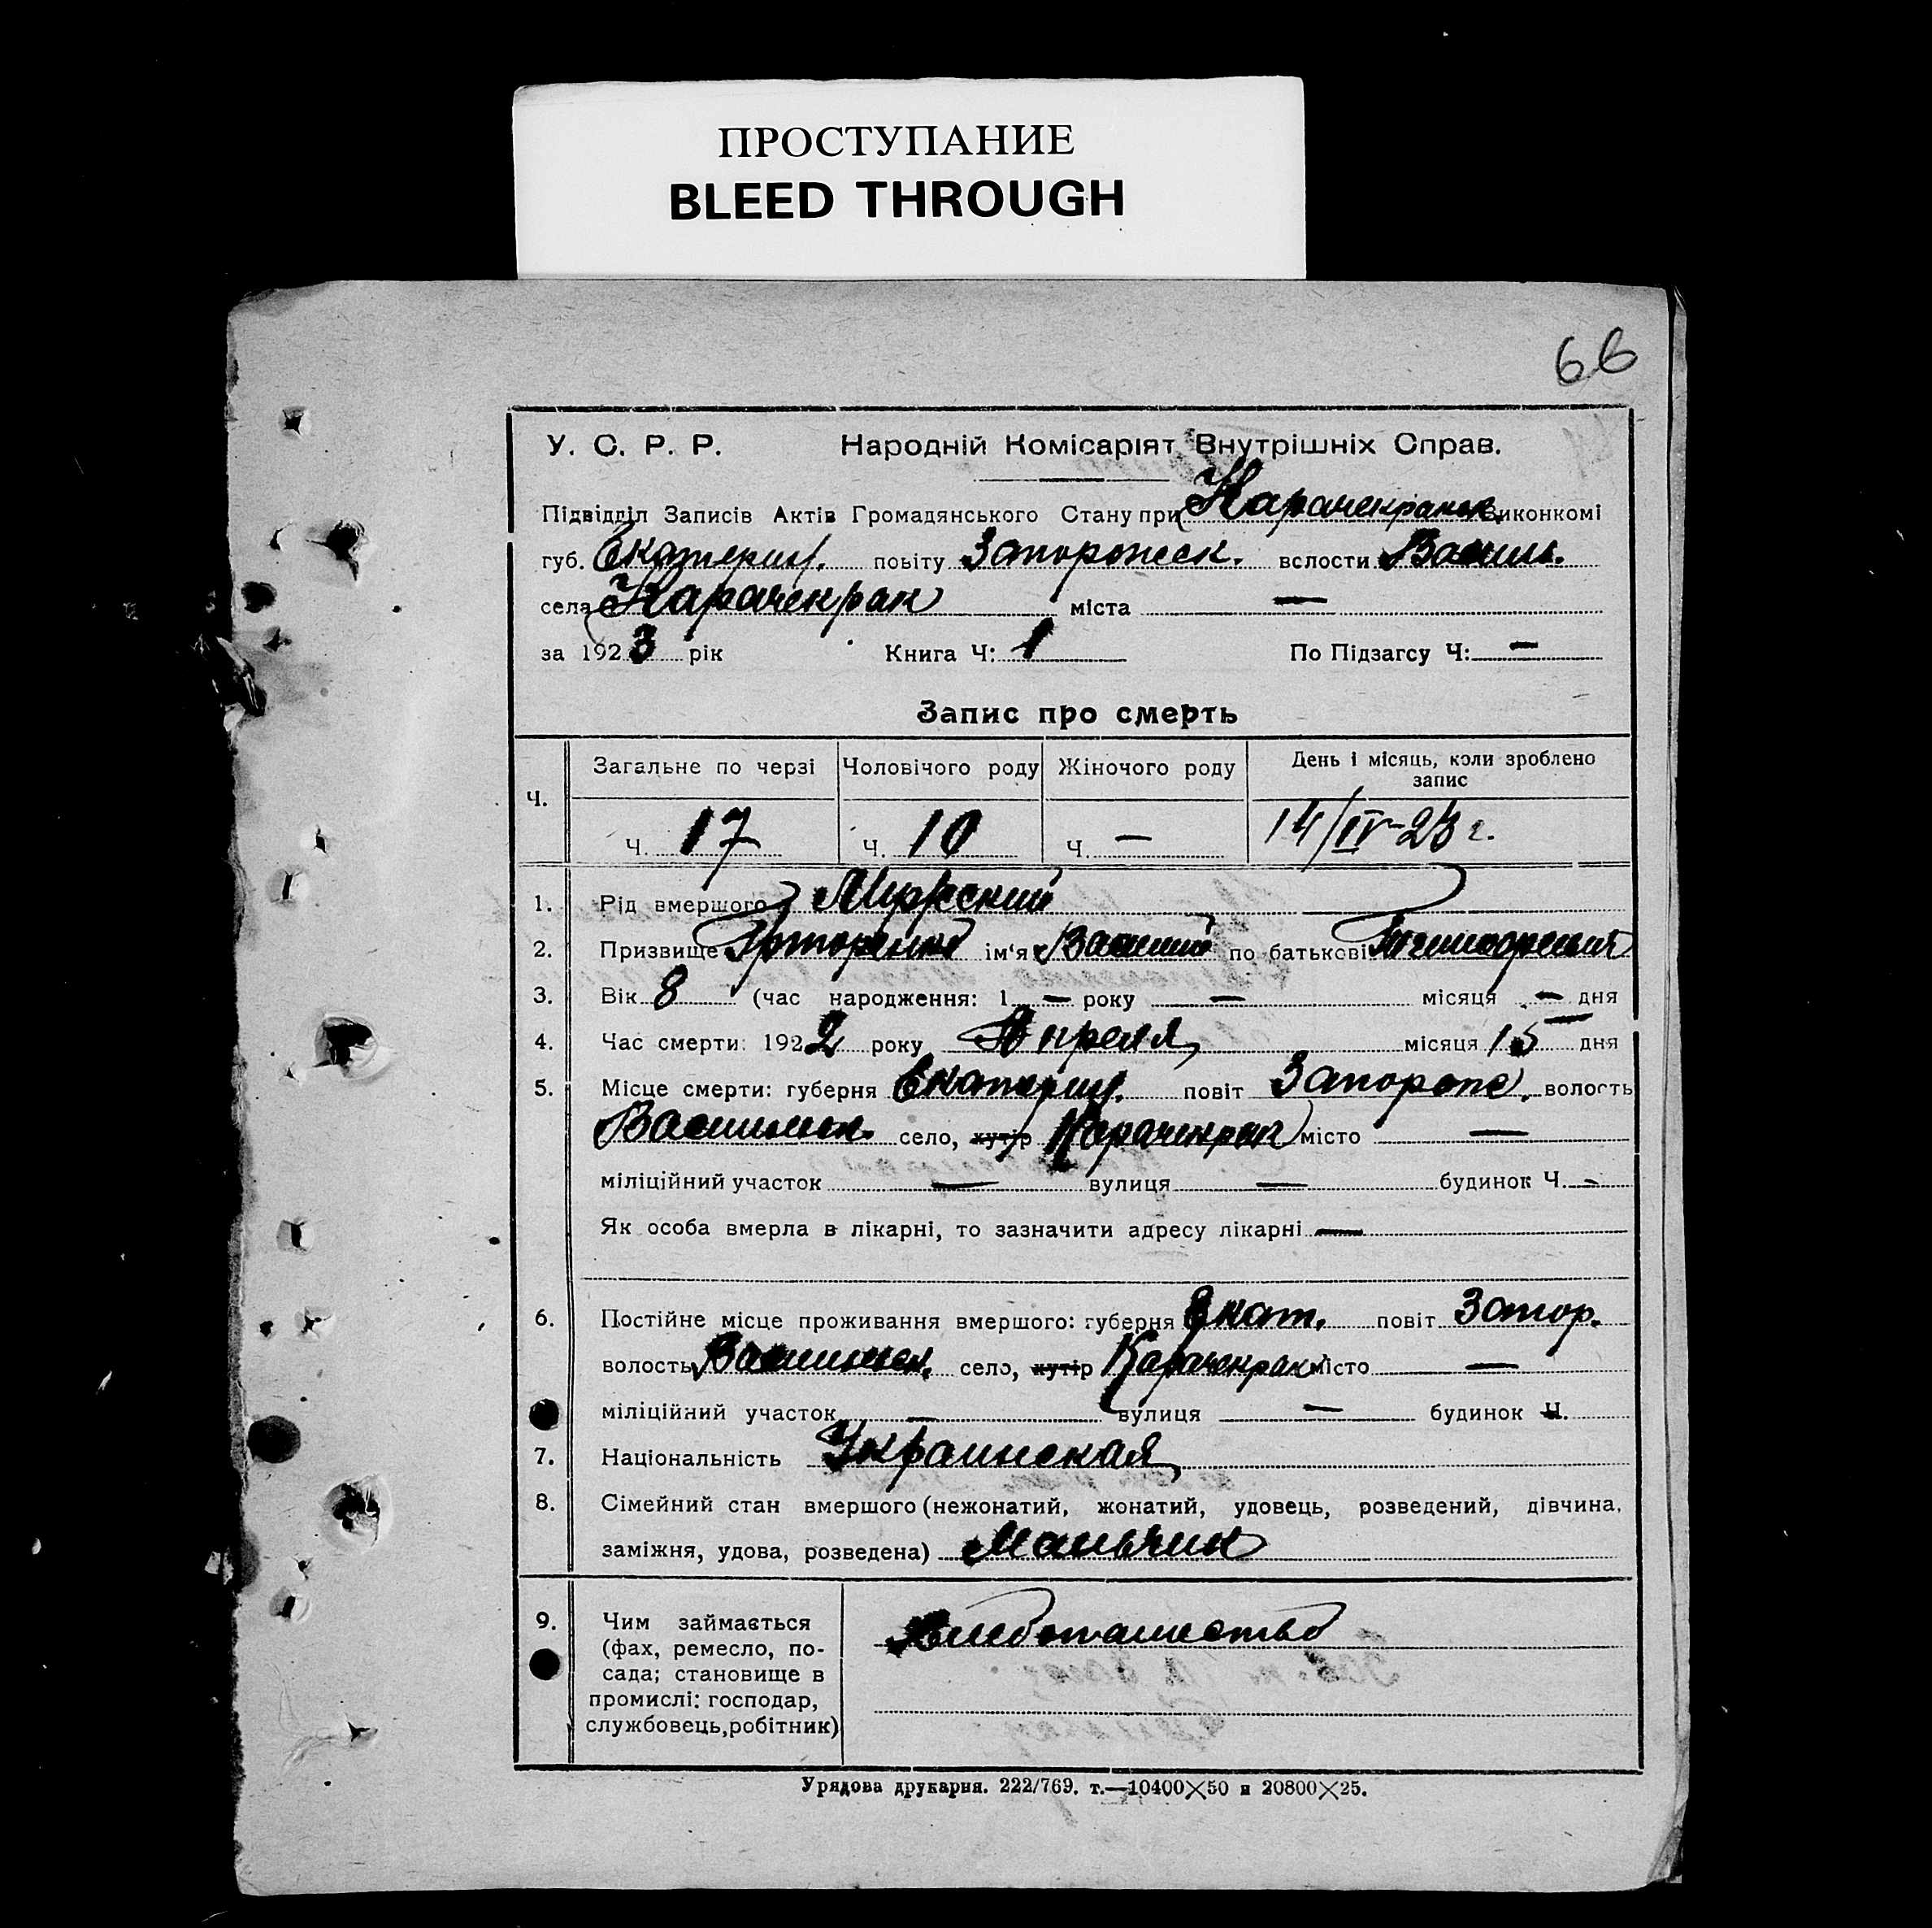 ПРОСТУПАНИЕ
BLEED THROUGH
66
У. С. Р. Р. Народній Комісаріят Внутрішніх Справ.
Підвідділ Записів Актів Громадянського Стану при Карачекранск. Виконкомі
губ. Екатерин. повіту Запорожск. вслости Васил.
села Карачекрак міста —
за 1923 рік Книга Ч: 1 По Підзагсу Ч: —
Запис про смерть
Ч. Загальне по черзі Чоловічого роду Жіночого роду День і місяць, коли зроблено запис
Ч. 17 Ч. 10 Ч. — 14/IV-23 г.
1. Рід вмершого
2. Призвище ім'я Василий по батькові
3. Вік 8 (час народження: 1 — року — місяця — дня
4. Час смерти: 1922 року Апреля місяця 15 дня
5. Місце смерти: губерня Екатерин. повіт Запорож. волость
Васильев. село, хутір Карачекрак місто —
міліційний участок — вулиця — будинок Ч. -
Як особа вмерла в лікарні, то зазначити адресу лікарні —
6. Постійне місце проживання вмершого: губерня Екат. повіт Запор.
волость Васильев. село, хутір Карачекрак місто —
міліційний участок — вулиця — будинок Ч.
7. Національність Украинская
8. Сімейний стан вмершого (нежонатий, жонатий, удовець, розведений, дівчина,
заміжня, удова, розведена) Мальчик
9. Чим займається Хлебопашество
(фах, ремесло, по-
сада; становище в
промислі: господар,
службовець, робітник)
Урядова друкарня. 222/769. т.—10400×50 и 20800×25.